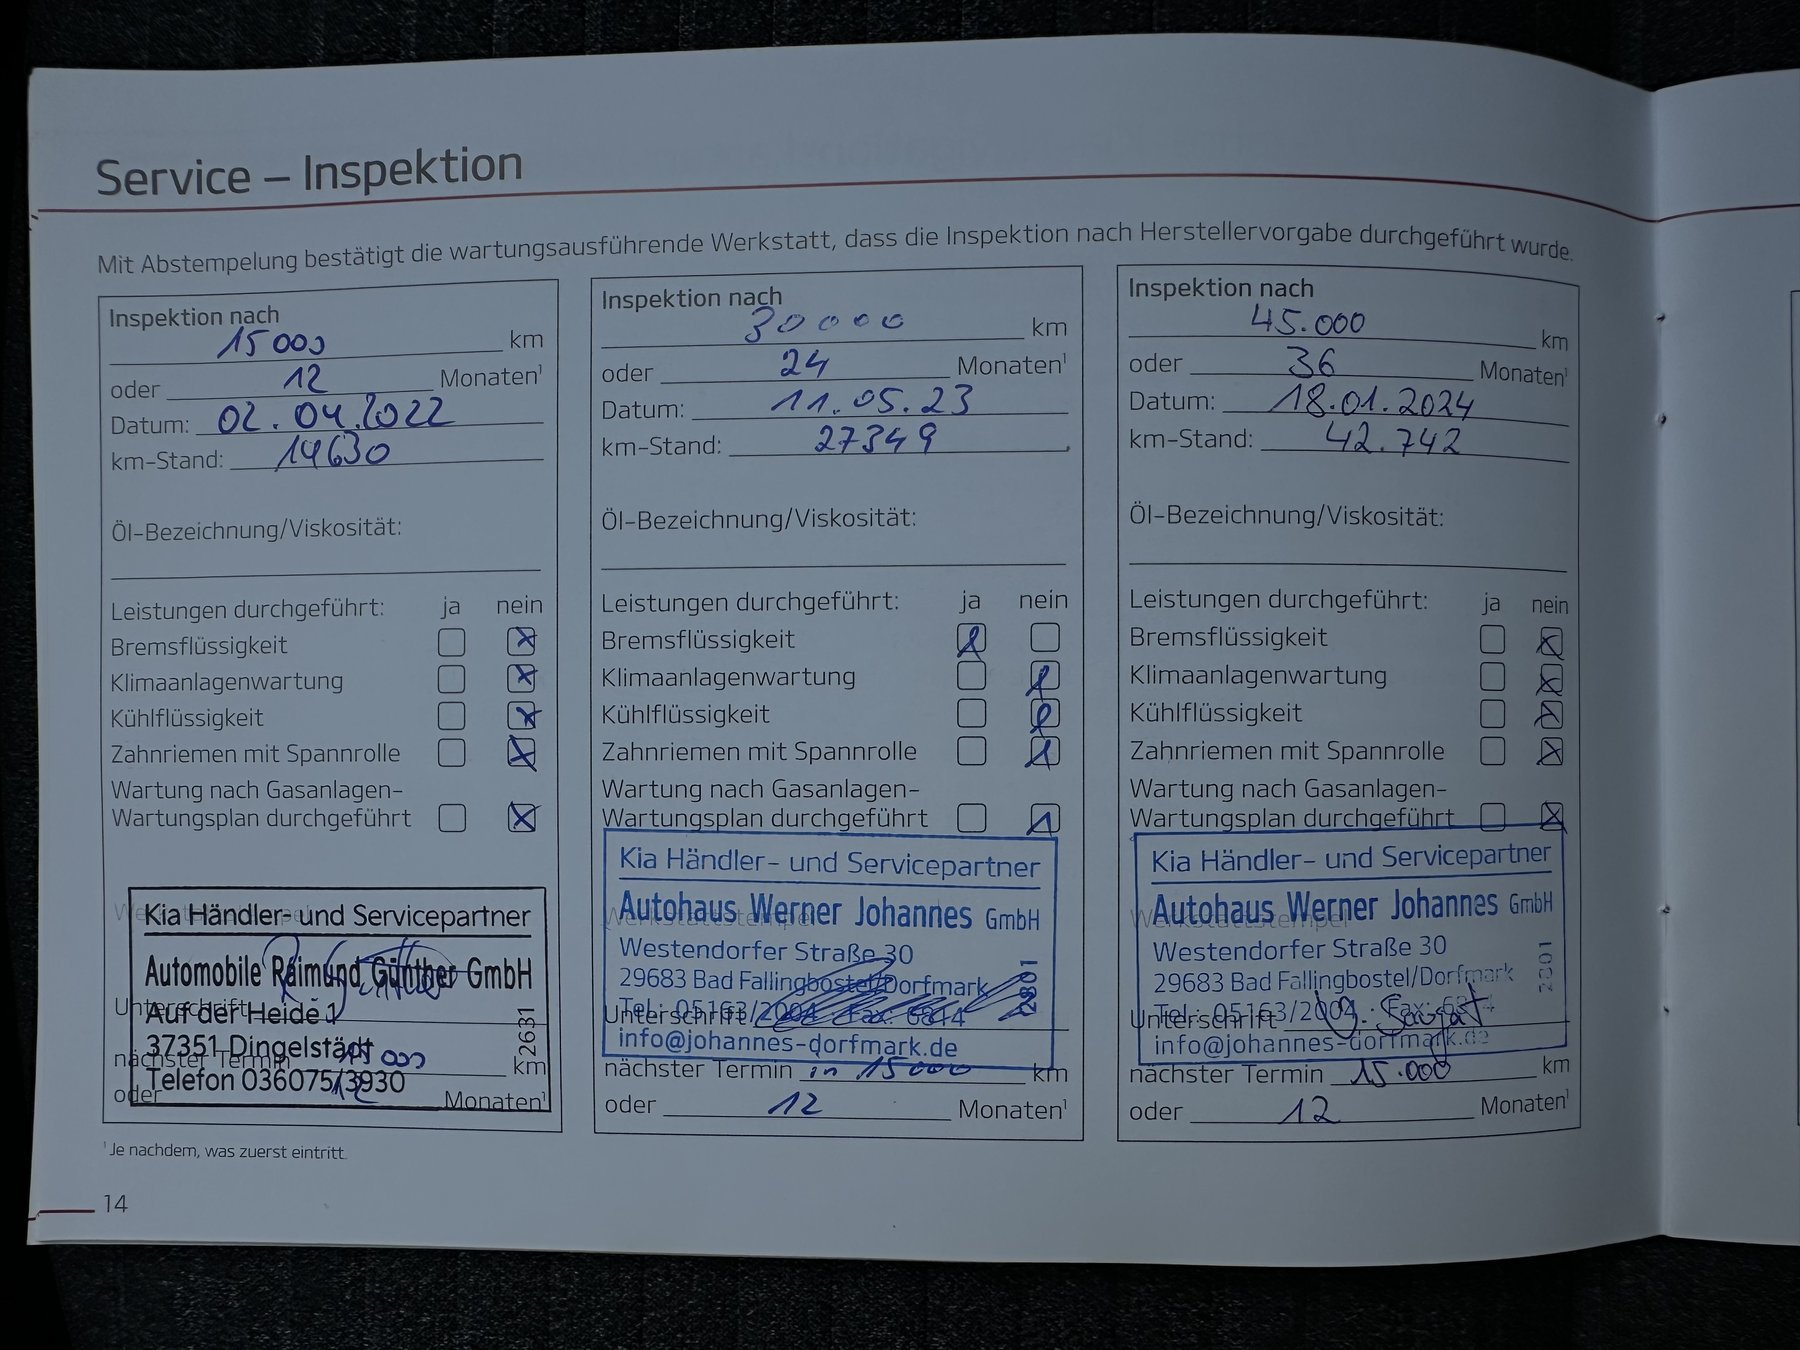 Service – Inspektion
Mit Abstempelung bestätigt die wartungsausführende Werkstatt, dass die Inspektion nach Herstellervorgabe durchgeführt wurde.
Inspektion nach
15000 km
oder 12 Monaten¹
Datum: 02.04.2022
km-Stand: 14630
Öl-Bezeichnung/Viskosität:
Leistungen durchgeführt: ja nein
Bremsflüssigkeit
Klimaanlagenwartung
Kühlflüssigkeit
Zahnriemen mit Spannrolle
Wartung nach Gasanlagen-
Wartungsplan durchgeführt
Werkstattstempel
Kia Händler- und Servicepartner
Automobile Raimund Günther GmbH
Auf der Heide 1
37351 Dingelstädt
Telefon 036075/3930
2631
Unterschrift
nächster Termin 15000 km
oder 12 Monaten¹
Inspektion nach
30000 km
oder 24 Monaten¹
Datum: 11.05.23
km-Stand: 27349
Öl-Bezeichnung/Viskosität:
Leistungen durchgeführt: ja nein
Bremsflüssigkeit
Klimaanlagenwartung
Kühlflüssigkeit
Zahnriemen mit Spannrolle
Wartung nach Gasanlagen-
Wartungsplan durchgeführt
Werkstattstempel
Kia Händler- und Servicepartner
Autohaus Werner Johannes GmbH
Westendorfer Straße 30
29683 Bad Fallingbostel/Dorfmark
Tel.: 05163/2004 · Fax: 6814
info@johannes-dorfmark.de
2301
Unterschrift
nächster Termin in 15000 km
oder 12 Monaten¹
Inspektion nach
45.000 km
oder 36 Monaten¹
Datum: 18.01.2024
km-Stand: 42.742
Öl-Bezeichnung/Viskosität:
Leistungen durchgeführt: ja nein
Bremsflüssigkeit
Klimaanlagenwartung
Kühlflüssigkeit
Zahnriemen mit Spannrolle
Wartung nach Gasanlagen-
Wartungsplan durchgeführt
Werkstattstempel
Kia Händler- und Servicepartner
Autohaus Werner Johannes GmbH
Westendorfer Straße 30
29683 Bad Fallingbostel/Dorfmark
Tel.: 05163/2004 · Fax: 6814
info@johannes-dorfmark.de
2301
Unterschrift
nächster Termin 15.000 km
oder 12 Monaten¹
¹ Je nachdem, was zuerst eintritt.
14